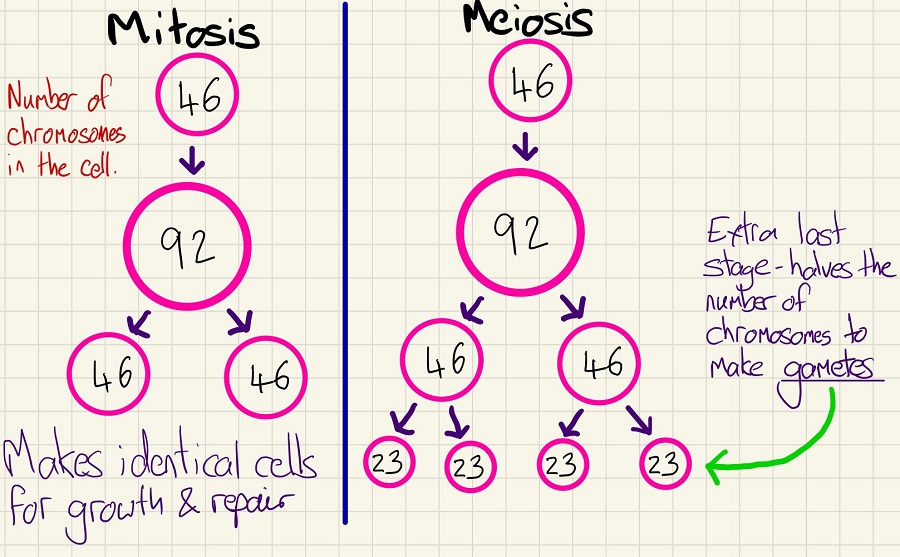 Mitosis
46
Number of
chromosomes
in the cell.
92
46 46
Makes identical cells
for growth & repair
Meiosis
46
92
46 46
23 23 23 23
Extra last
stage - halves the
number of
chromosomes to
make gametes